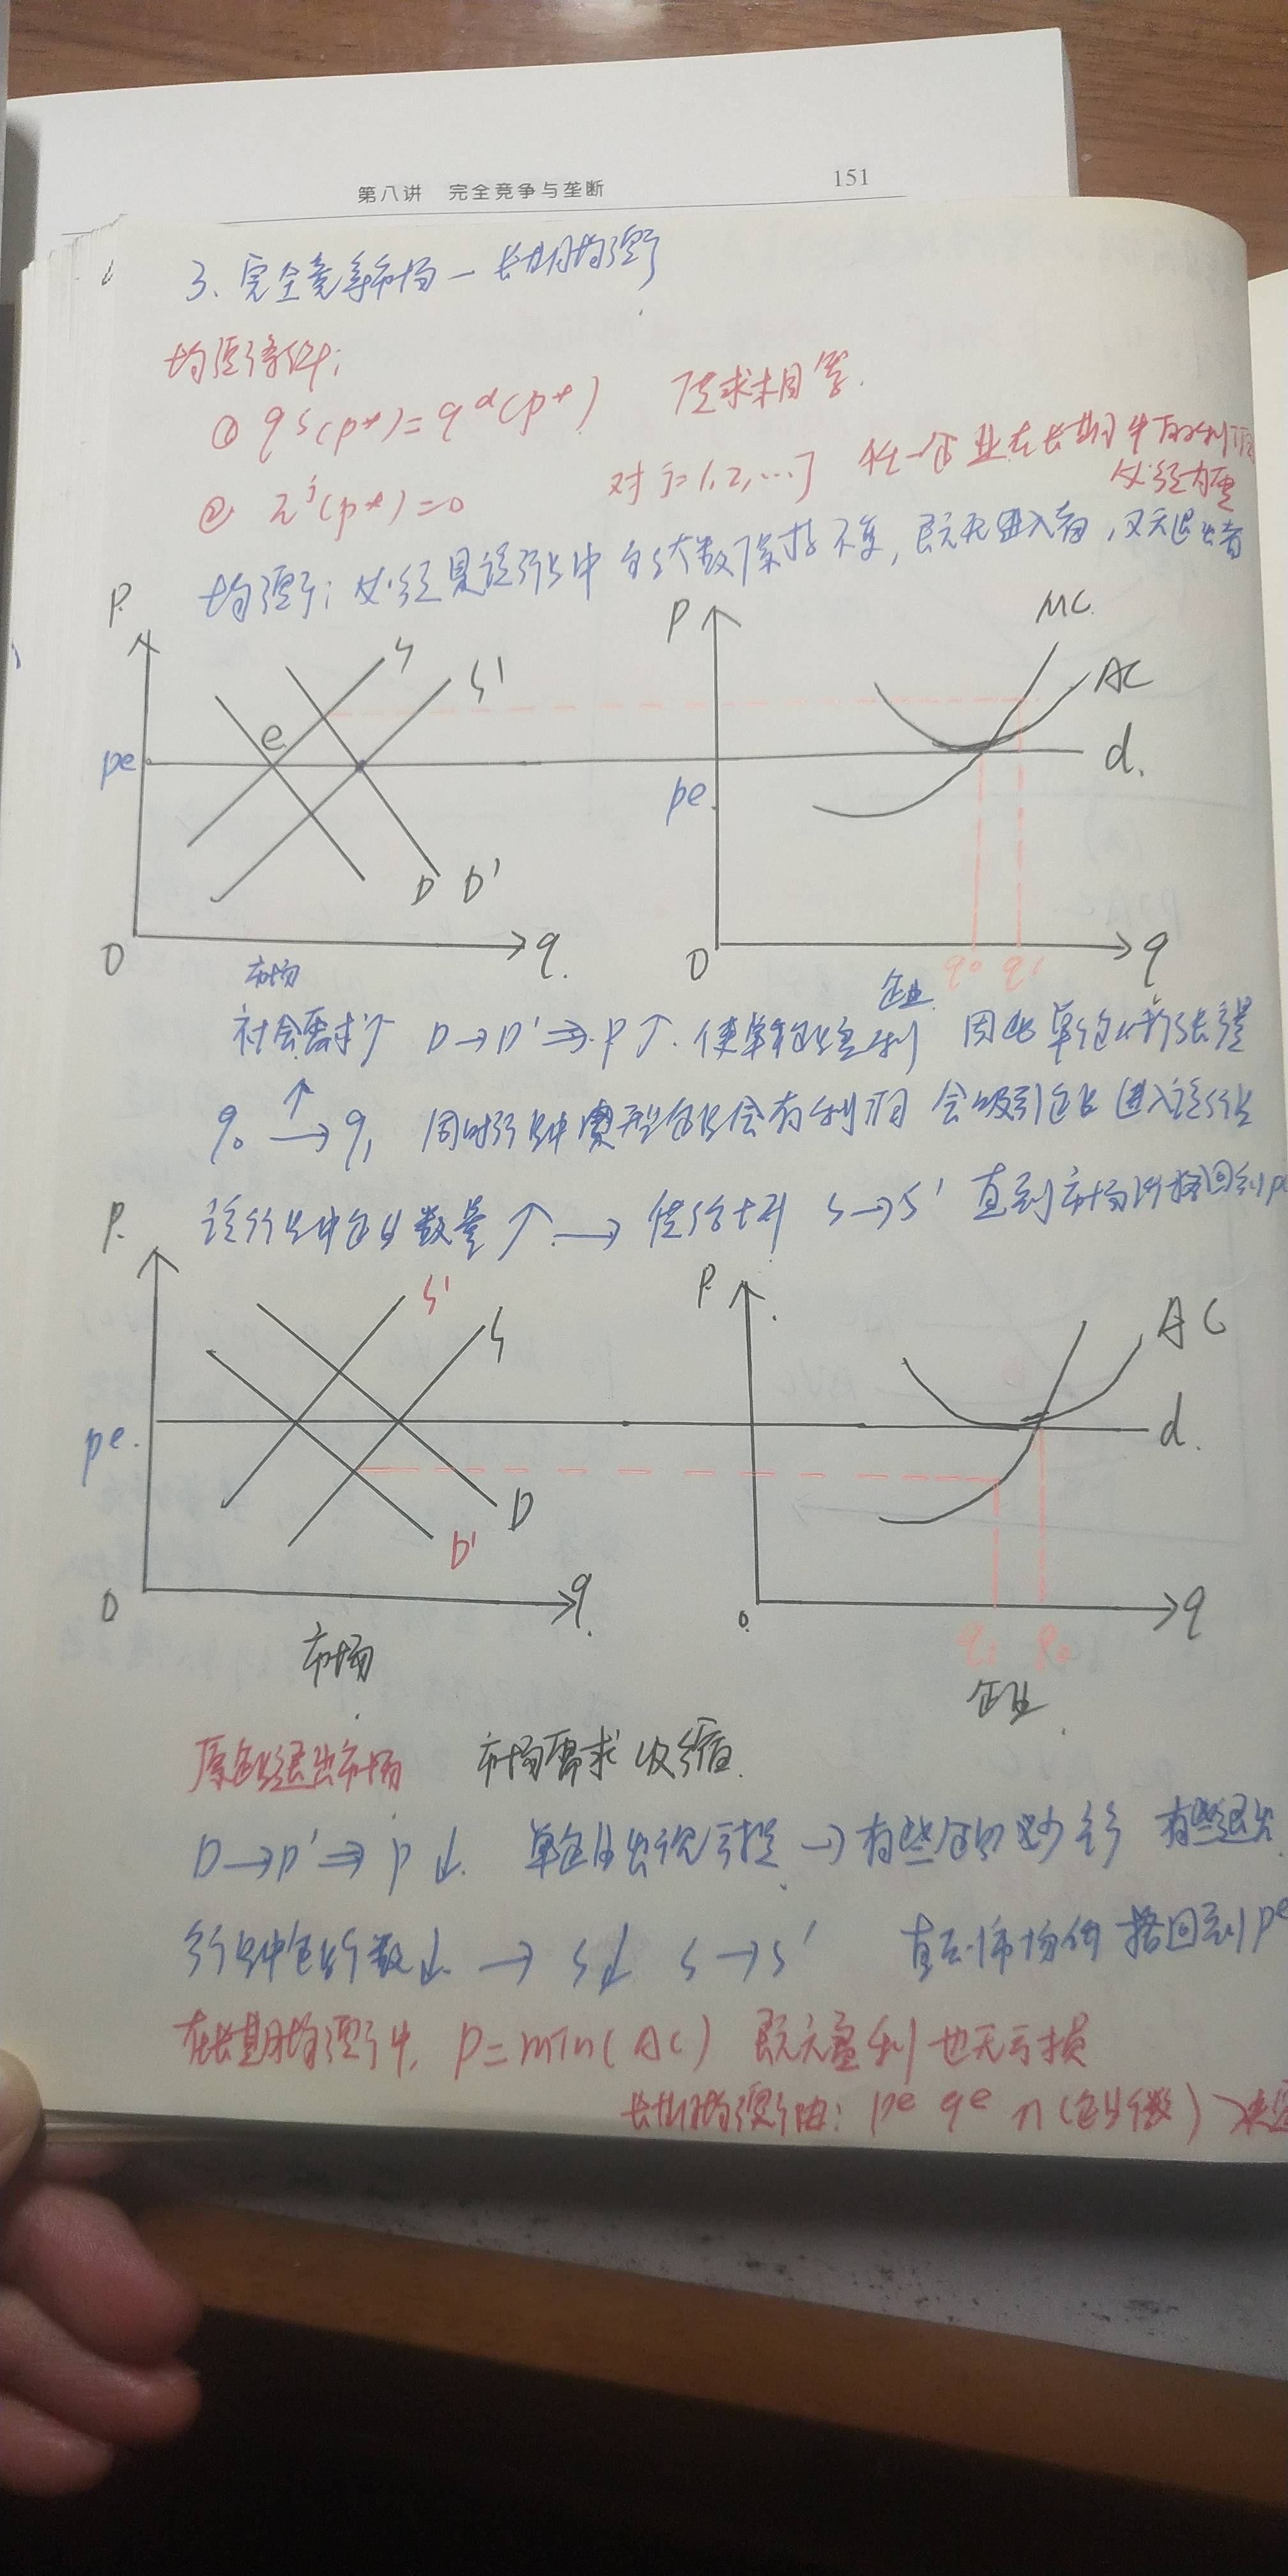 第八讲 完全竞争与垄断 151
3、完全竞争市场一长期均衡
均衡条件:
① qˢ(p*)=qᵈ(p*) 供求相等.
② πʲ(p*)=0 对 j=1,2,…J 任一企业在长期中的利润
必须为零
均衡: 必须是该行业中的大数保持不变, 既无进入者, 又无退出者
P. P MC.
S S' AC
e
pe pe. d.
D D'
0 q. 0 q₀ q₁ q
市场 企业
社会需求↑ D→D'⇒P↑. 使单个企业盈利 因此单个企业扩张产量
q₀ → q₁ 同时行业中典型企业会有利润 会吸引企业进入该行业
该行业中企业数量↑ → 供给上升 S→S' 直到市场价格回到pe
P. P.
S' S AC
pe. d.
D
D'
0 q. 0 q₁ q₀ q
市场 企业
原企业退出市场 市场需求收缩.
D→D'⇒P↓. 单企业出现亏损 →有些企业减少生产 有些退出.
行业中企业个数↓. → S↓ S→S' 直至市场价格回到pe
在长期均衡中, P=min(AC) 既无盈利也无亏损
长期均衡由: pe qe n(企业个数)